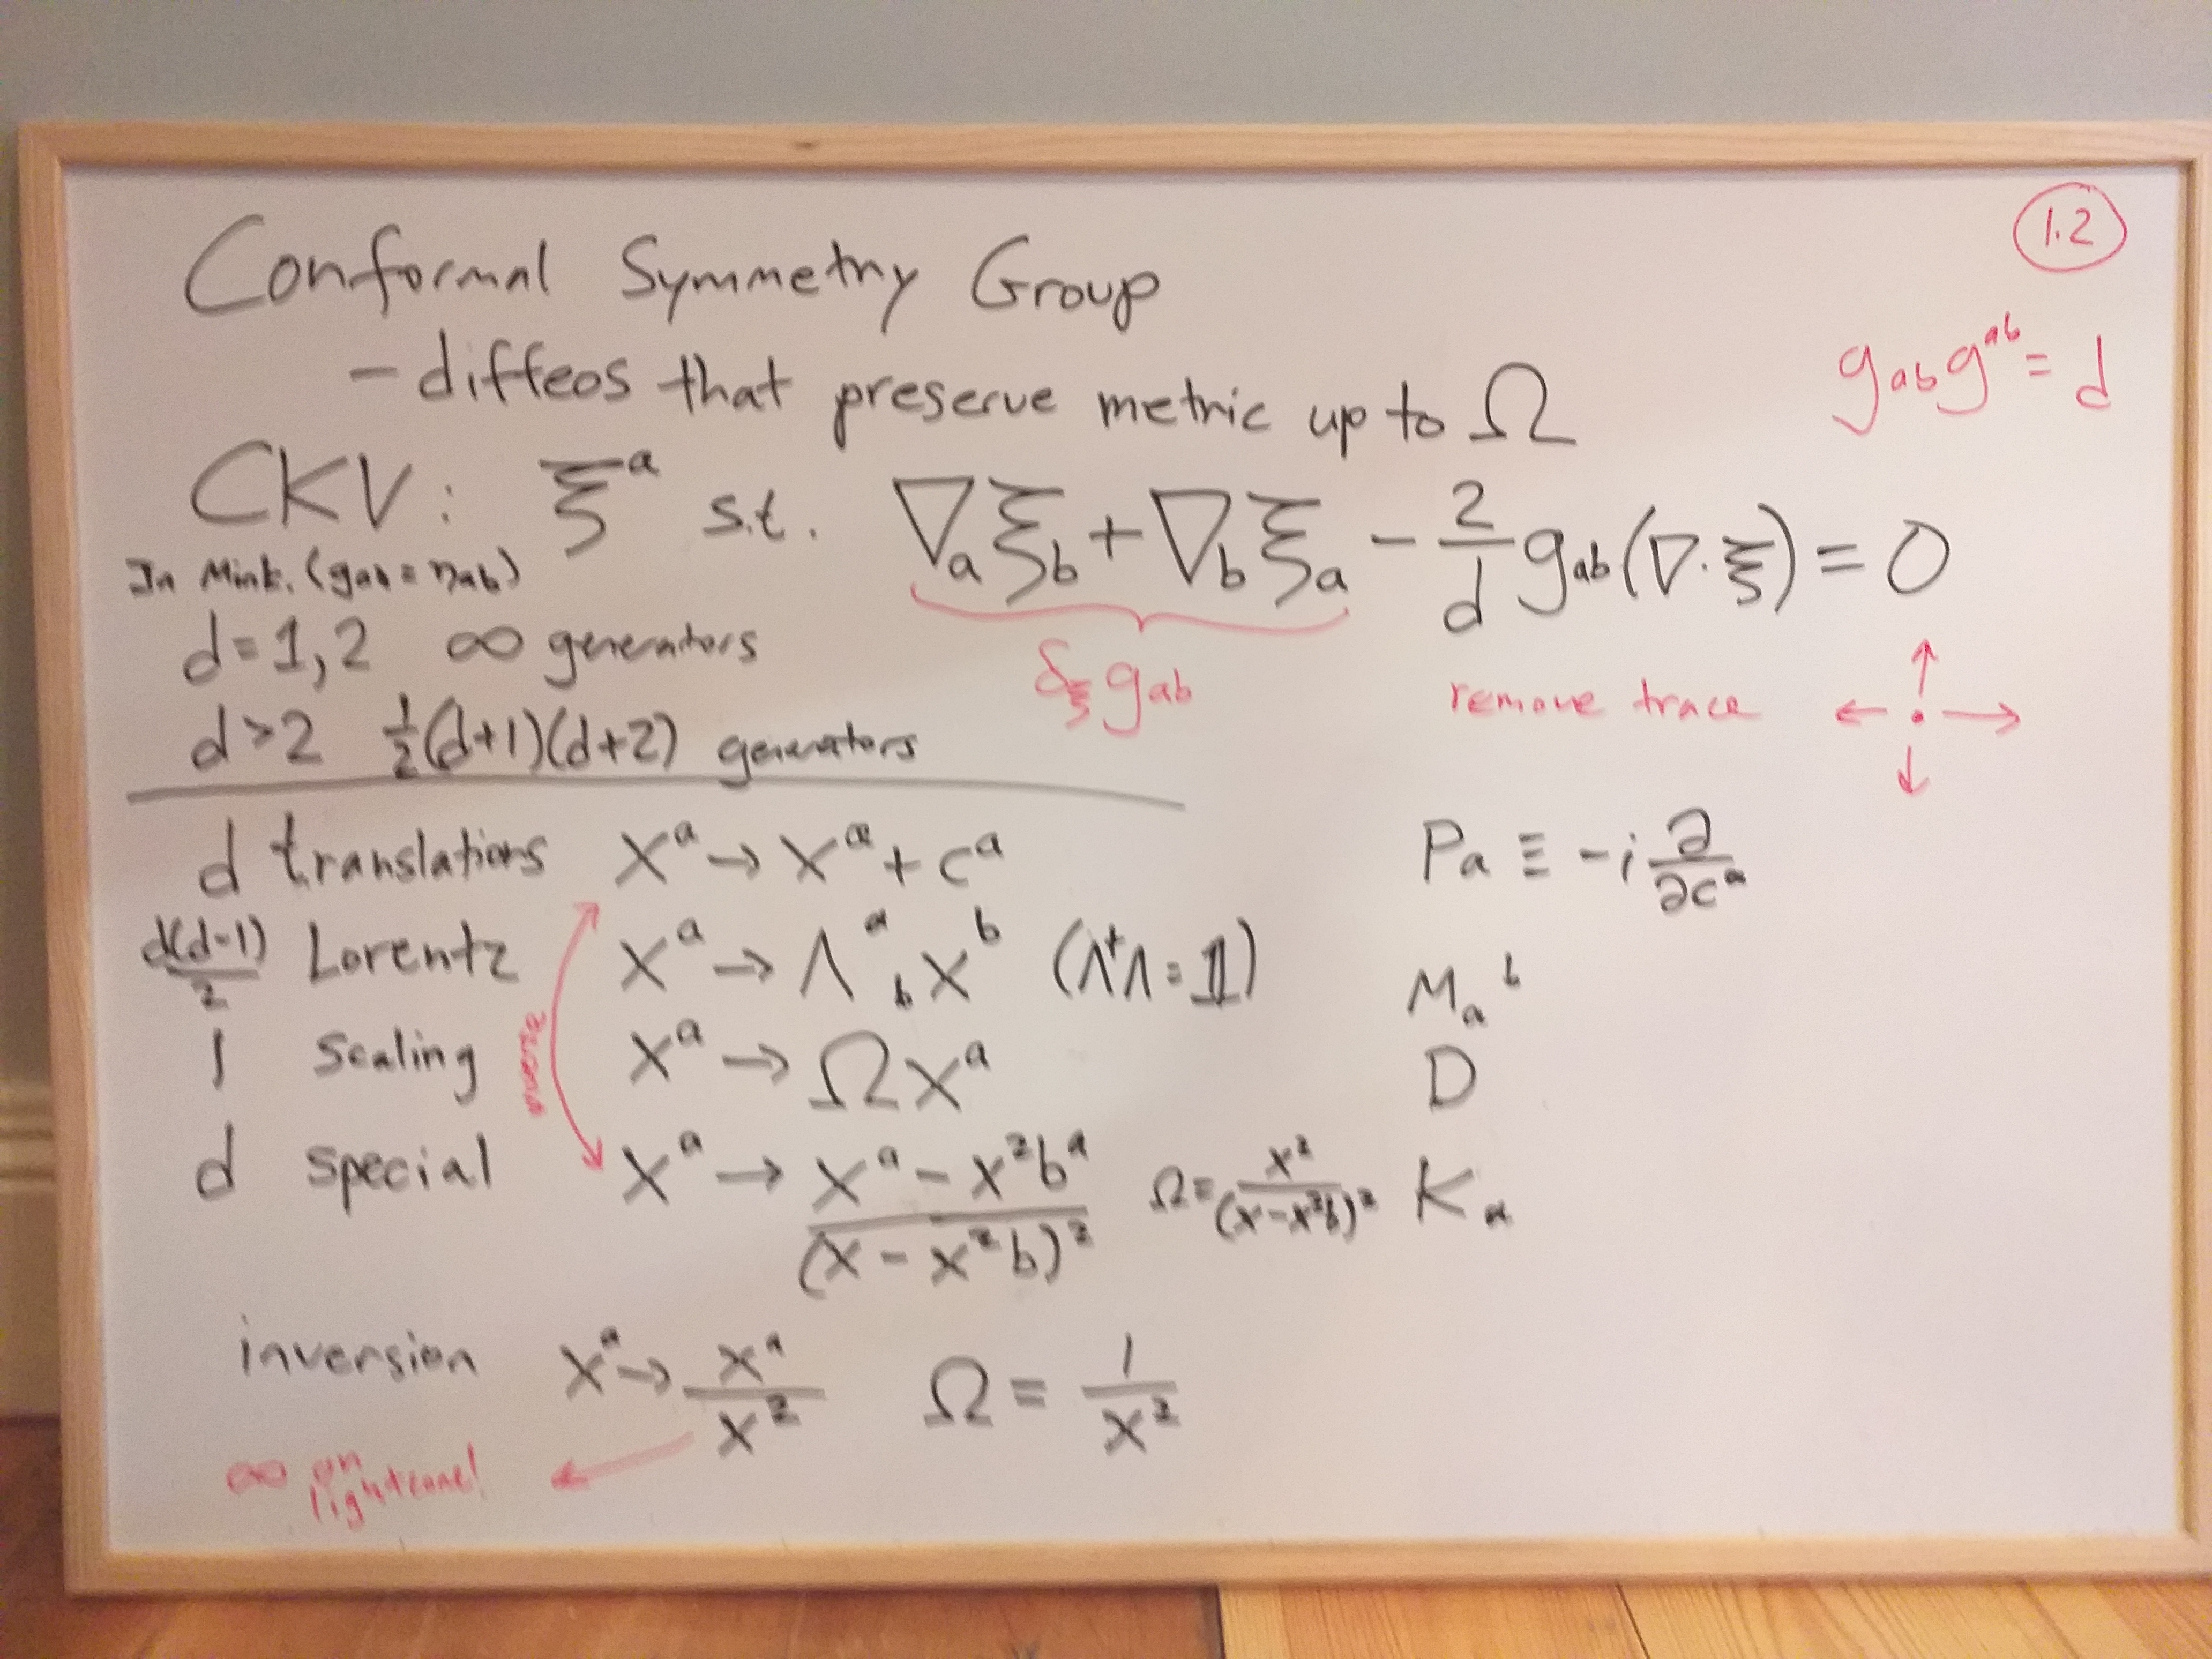 1.2
Conformal Symmetry Group
- diffeos that preserve metric up to Ω
g_ab g^ab = d
CKV: ξ^a s.t. ∇_a ξ_b + ∇_b ξ_a - 2/d g_ab (∇·ξ) = 0
In Mink. (g_ab = η_ab)
δ_ξ g_ab
remove trace
d=1,2 ∞ generators
d>2 ½(d+1)(d+2) generators
d translations x^a → x^a + c^a P_a ≡ -i ∂/∂c^a
d(d-1)/2 Lorentz x^a → Λ^a_b x^b (Λ^†Λ = 𝟙) M_a^b
1 Scaling x^a → Ω x^a D
inverse
d special x^a → (x^a - x²b^a)/(x - x²b)² Ω = x²/(x - x²b)² K_a
inversion x^a → x^a/x² Ω = 1/x²
∞ on
lightcone!